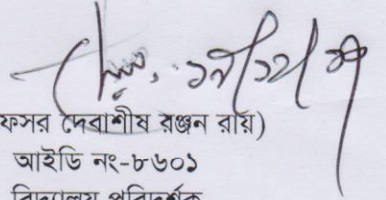 ফসর দেবাশীষ রঞ্জন রায়)
আইডি নং-৮৬০১
বিদ্যালয় পরিদর্শক